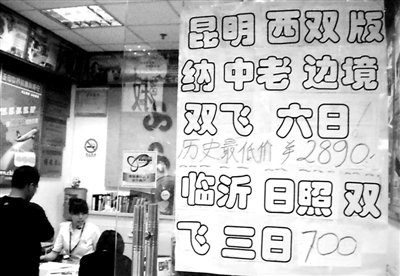 昆明 西双版
纳 中老 边境
双飞 六日!
历史最低价￥2890.
临沂 日照 双
飞 三日 700